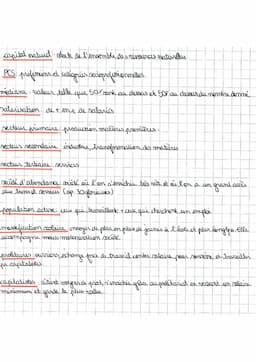 capital naturel : stock de l'ensemble des ressources naturelles
PCS : professions et catégories socioprofessionnelles
médiane : valeur telle que 50% sont au dessus et 50% au dessous du nombre donné
salarisation : de + en + de salariés
secteur primaire : production matières premières
secteur secondaire : industrie, transformation des matières
secteur tertiaire : services
société d'abondance : société où l'on s'enrichit très vite et où l'on a un grand accès
aux biens et services (ap 30 glorieuses)
population active : ceux qui travaillent + ceux qui cherchent un emploi
massification scolaire : envoyer de plus en plus de jeunes à l'école et plus longtps. Elle
accompagne mais
prolétaires : ouvriers échange force de travail contre salaire, pour survivre, et travaille
pr capitalistes
capitalisme : grâce au prolétariat en versant un salaire
minimum et garde la plus-value